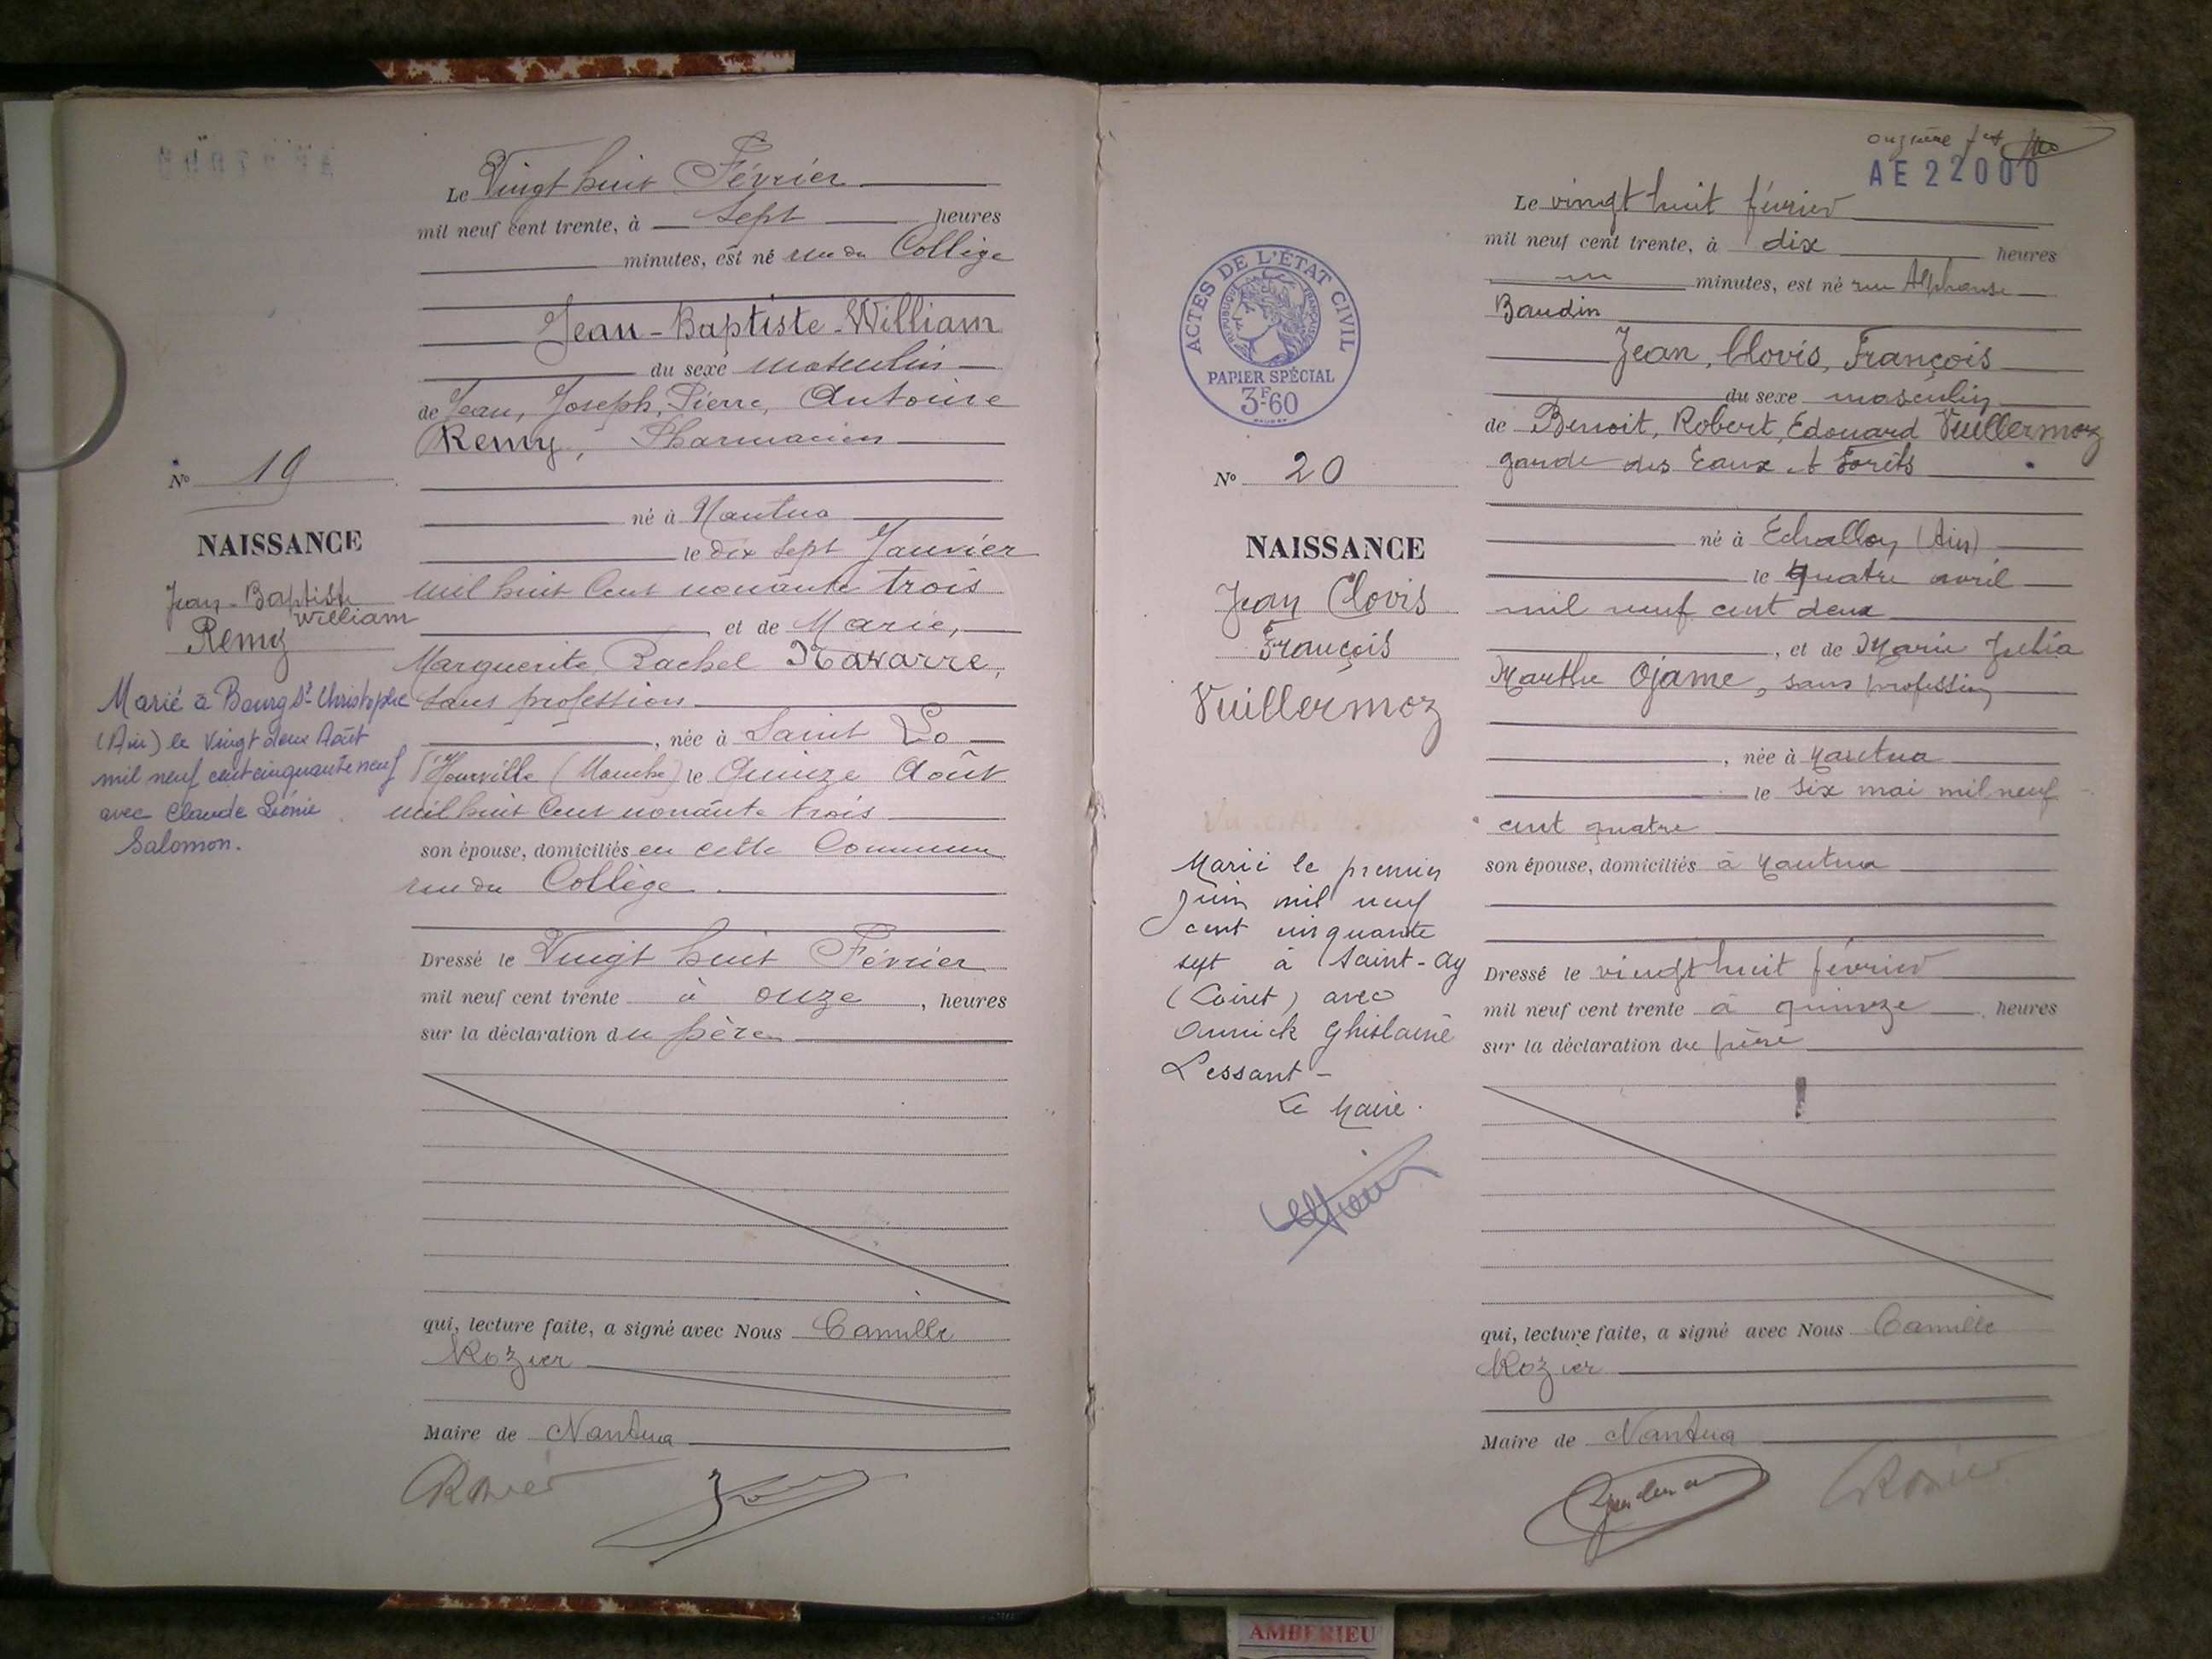 Le Vingt huit Février
mil neuf cent trente, à sept heures
minutes, est né rue du Collège
Jean-Baptiste-William
du sexe masculin
de Jean, Joseph, Pierre, Antoine
Remy, Pharmacien
né à Nantua
le dix sept Janvier
mil huit cent nonante trois
et de Marie,
Marguerite, Rachel Navarre,
sans profession
, née à Saint Lo
(Manche) le Quinze Août
mil huit cent nonante trois
son épouse, domiciliés en cette Commune
rue du Collège
Dressé le Vingt huit Février
mil neuf cent trente à onze, heures
sur la déclaration du père
qui, lecture faite, a signé avec Nous Camille
Rozier
Maire de Nantua
No 19
NAISSANCE
Jean-Baptiste
William
Remy
Marié à Bourg St Christophe
(Ain) le vingt deux Août
mil neuf cent cinquante neuf
avec Claude Léonie
Salomon.
onzième fet
AE 22000
Le vingt huit février
mil neuf cent trente, à dix heures
minutes, est né rue Alphonse
Baudin
Jean, Clovis, François
du sexe masculin
de Benoit, Robert, Edouard Vuillermoz
garde des Eaux et Forêts
né à Echallon (Ain)
le quatre avril
mil neuf cent deux
, et de Marie Julia
Marthe Ojame, sans profession
, née à Nantua
le six mai mil neuf
cent quatre
son épouse, domiciliés à Nantua
Dressé le vingt huit février
mil neuf cent trente à quinze, heures
sur la déclaration du père
qui, lecture faite, a signé avec Nous Camille
Rozier
Maire de Nantua
ACTES DE L'ÉTAT CIVIL
RÉPUBLIQUE FRANÇAISE
PAPIER SPÉCIAL
3F60
No 20
NAISSANCE
Jean Clovis
François
Vuillermoz
Marié le premier
Juin mil neuf
cent cinquante
sept à Saint-Ay
(Loiret) avec
Annick Ghislaine
Lessant -
Le Maire.
AMBERIEU